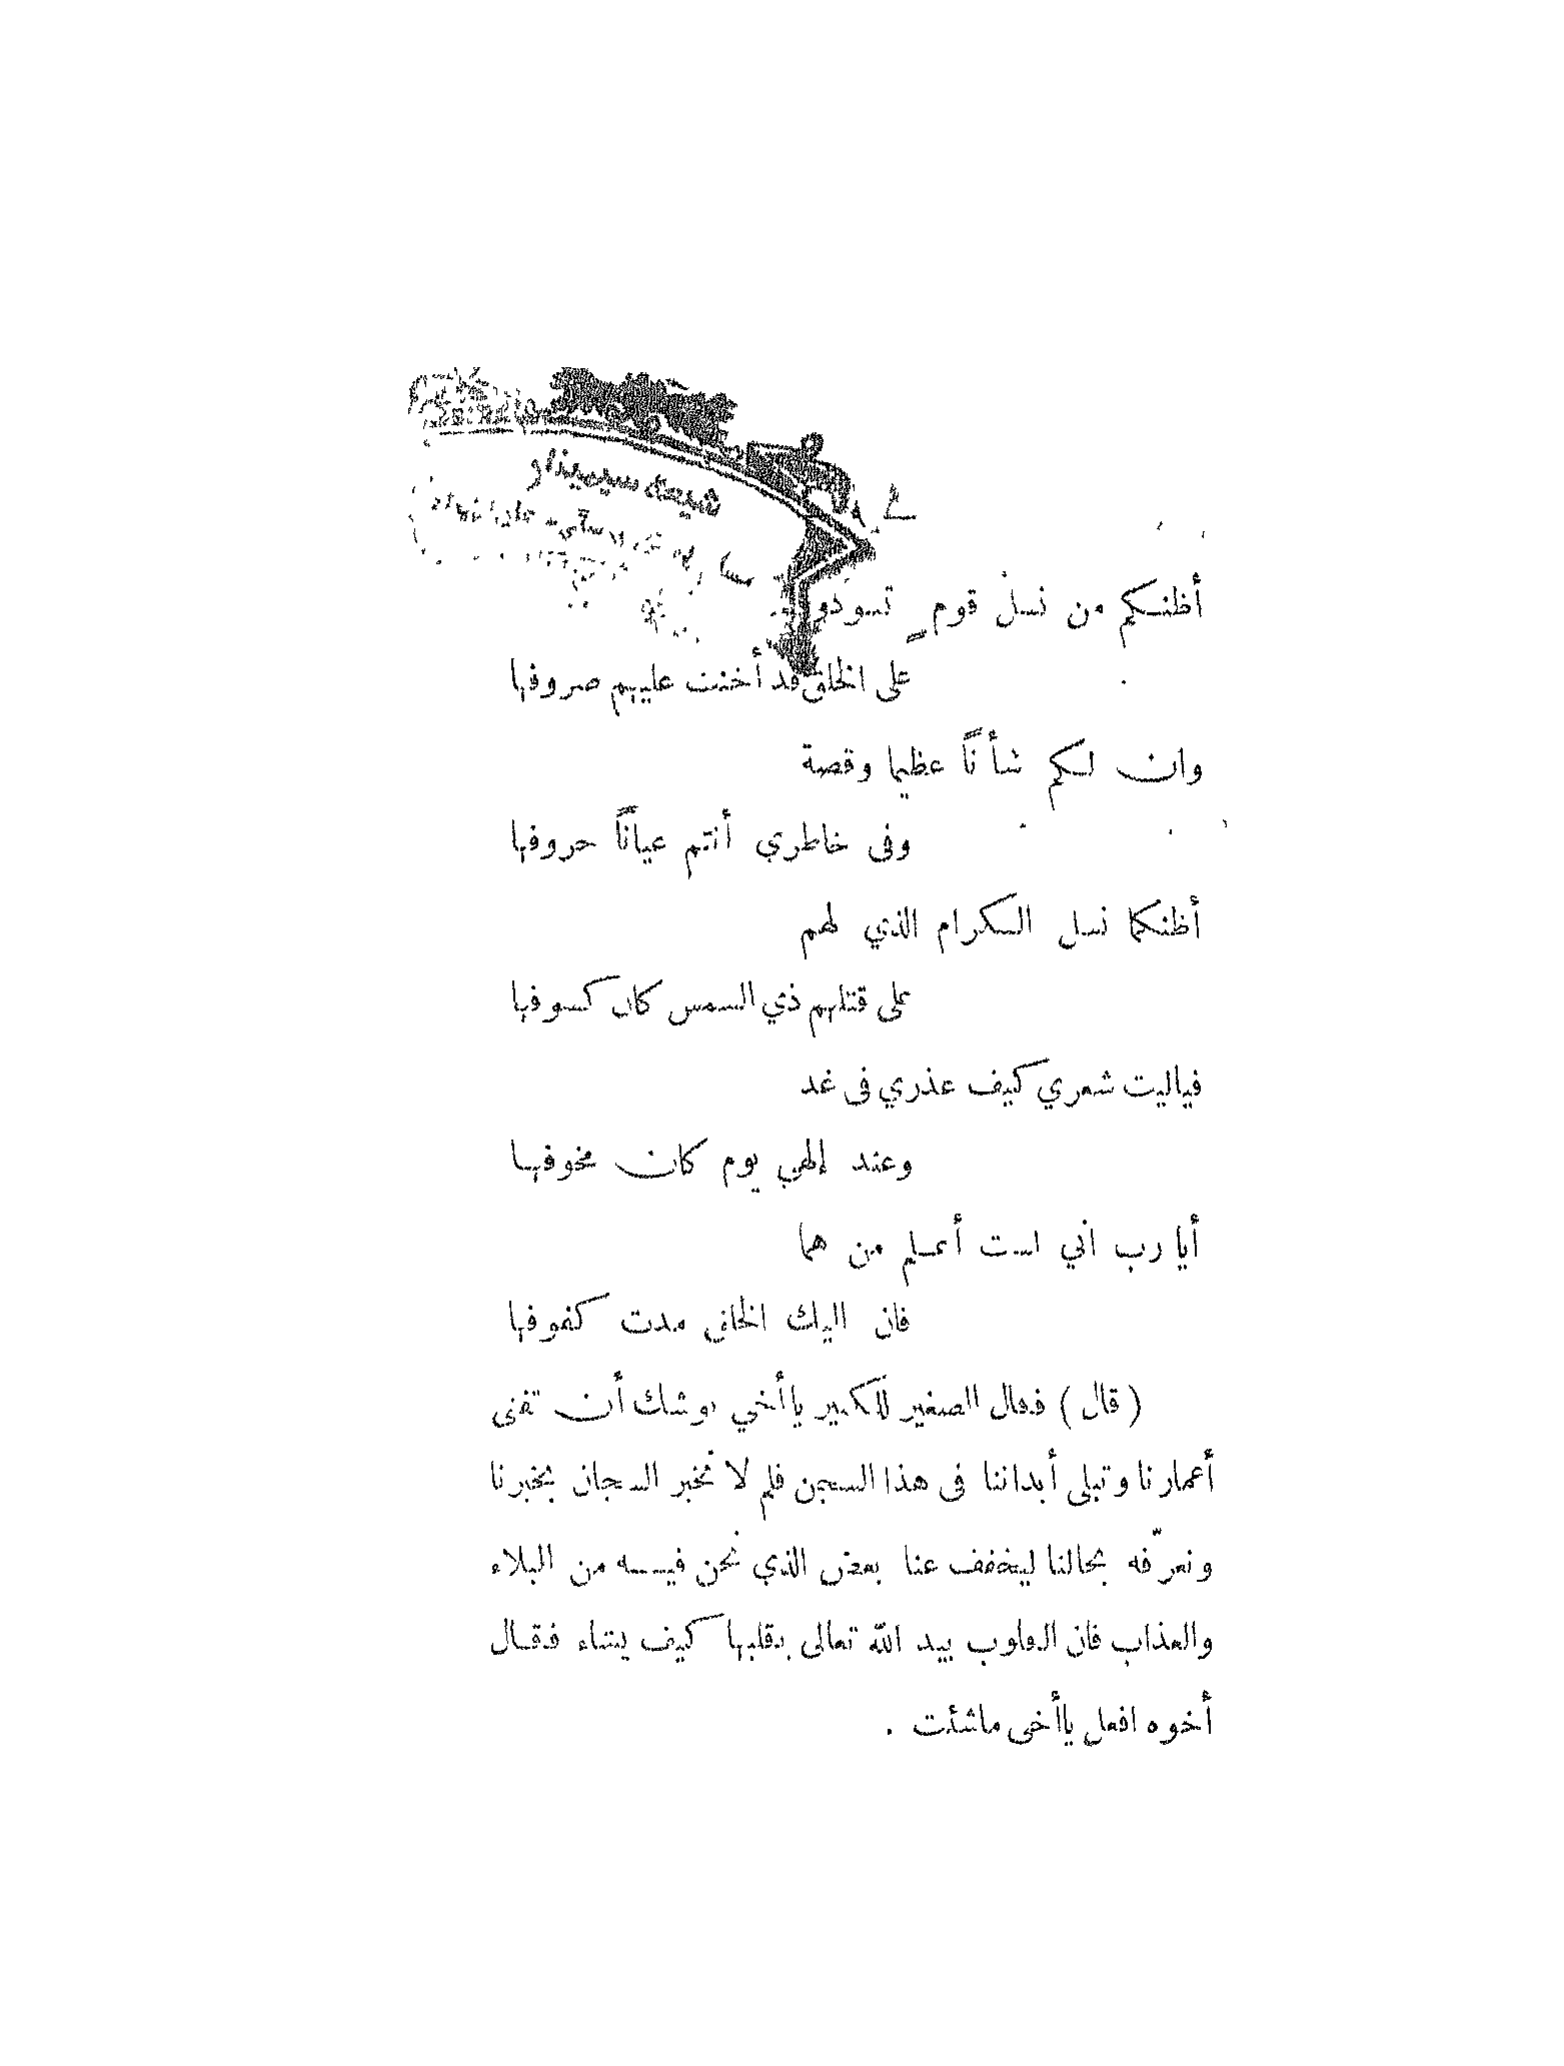 أظنكم من نسل قوم تسودوا
على الخلق قد أخنت عليهم صروفها
وان لكم شأناً عظيما وقصة
وفى خاطري أنتم عياناً حروفها
أظنكما نسل الكرام الذي لهم
على قتلهم ذي الشمس كان كسوفها
فياليت شعري كيف عذري فى غد
وعند إلهي يوم كان مخوفها
أيا رب اني لست أعلم من هما
فان اليك الخلق مدت كفوفها
( قال ) فقال الصغير للكبير ياأخي يوشك أن تفنى
أعمارنا وتبلى أبداننا فى هذا السجن فلم لا نخبر السجان بخبرنا
ونعرّفه بحالنا ليخفف عنا بعض الذي نحن فيه من البلاء
والعذاب فان القلوب بيد الله تعالى يقلبها كيف يشاء فقال
أخوه افعل ياأخى ماشئت .